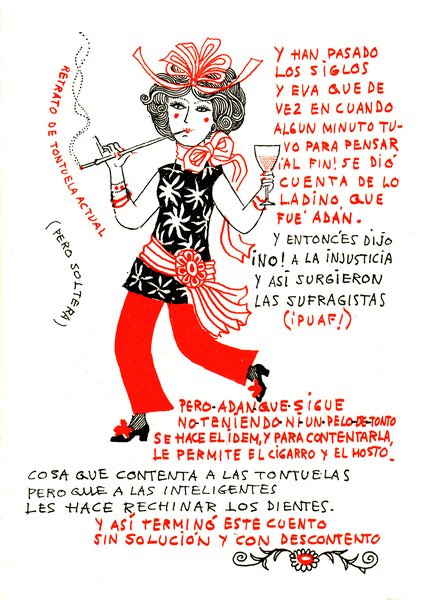 RETRATO DE TONTUELA ACTUAL
(PERO SOLTERA)
Y HAN PASADO
LOS SIGLOS
Y EVA QUE DE
VEZ EN CUANDO
ALGUN MINUTO TU-
VO PARA PENSAR
¡AL FIN! SE DIÓ
CUENTA DE LO
LADINO, QUE
FUÉ ADÁN.
Y ENTONCES DIJO
¡NO! A LA INJUSTICIA
Y ASÍ SURGIERON
LAS SUFRAGISTAS
(¡PUAF!)
PERO ADAN QUE SIGUE
NO TENIENDO NI UN PELO DE TONTO
SE HACE EL IDEM, Y PARA CONTENTARLA,
LE PERMITE EL CIGARRO Y EL MOSTO.
COSA QUE CONTENTA A LAS TONTUELAS
PERO QUE A LAS INTELIGENTES
LES HACE RECHINAR LOS DIENTES.
Y ASÍ TERMINÓ ESTE CUENTO
SIN SOLUCIÓN Y CON DESCONTENTO